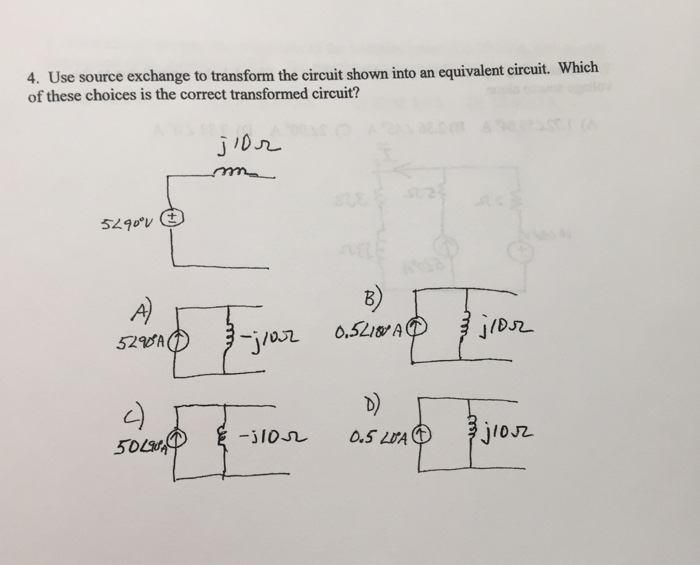 4. Use source exchange to transform the circuit shown into an equivalent circuit. Which
of these choices is the correct transformed circuit?
j10Ω
5∠90°V
A)
5∠90°A
-j10Ω
B)
j10Ω
C)
-j10Ω
D)
j10Ω